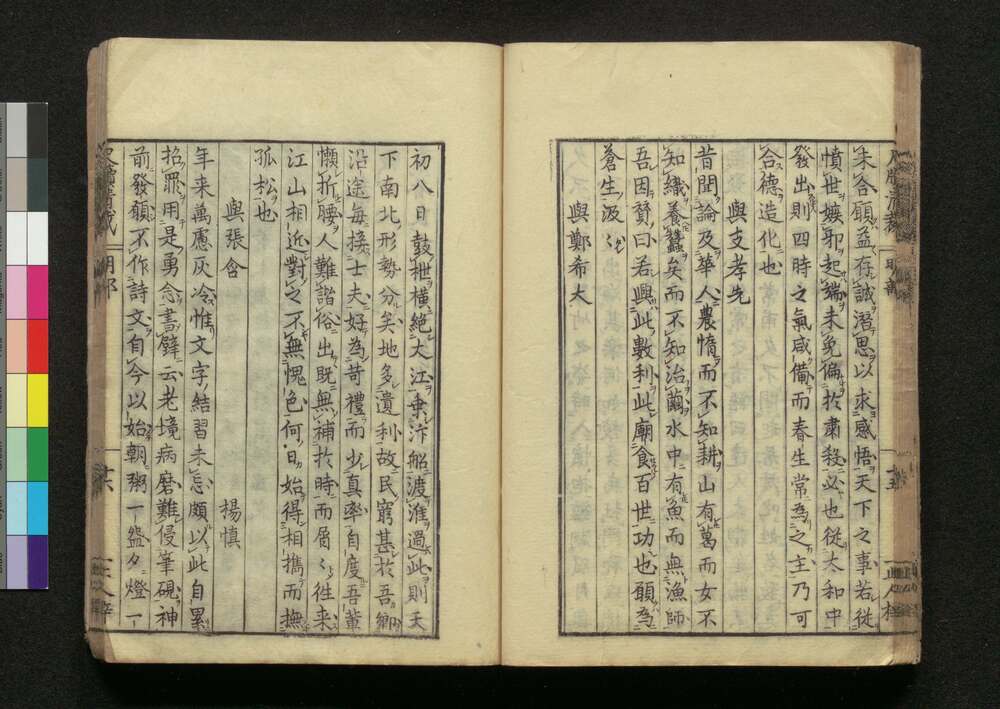 未合願益存誠潛思以求感悟天下之事若從
憤世嫉邪起端未免偏於肅殺必也從太和中
發出則四時之氣咸備而春生常為之主乃可
合德造化也
與支孝先
昔聞論及華人農惰而不知耕山有葛而女不
知織養蠶矣而不知治繭水中有魚而無漁師
吾因贊曰若興此數利此廟食百世功也願為
蒼生汲〻
與鄭希大
初八日鼓枻橫絕大江乘汴船渡淮過此則天
下南北形勢分矣地多遺利故民窮甚於吾鄉
沿途每接士夫好為苛禮而少真率自度吾輩
懶折腰人難諧俗出既無補於時而屑〻往来
江山相近對之不無愧色何日始得相攜而撫
孤松也
與張含
楊慎
年来萬慮灰冷惟文字結習未忘頗以此自累
招罪用是勇念書壁云老境病磨難侵筆硯神
前發願不作詩文自今以始朝粥一盌夕燈一